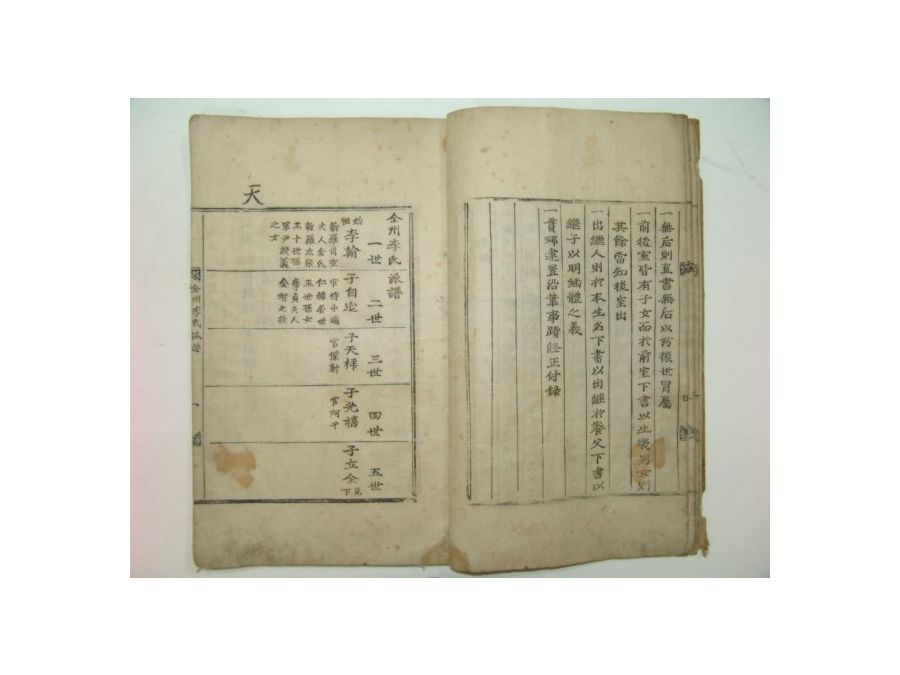 一無后則直書無后以防後世冒屬
一前後室皆有子女而於前室下書以生幾男女則
其餘當知後室出
一出繼人則於本生名下書以出繼於養父下書以
繼子以明編體之義
一貫鄉建置沿革事蹟修正付錄
天
全州李氏派譜
一世
二世
三世
四世
五世
始祖李翰
新羅司空
夫人金氏
新羅太宗
王十世孫
軍尹殷義
之女
子自延
官侍中
五世孫女
子天祥
官僕射
子光禧
官阿干
子立全
見下
全州李氏派譜
一